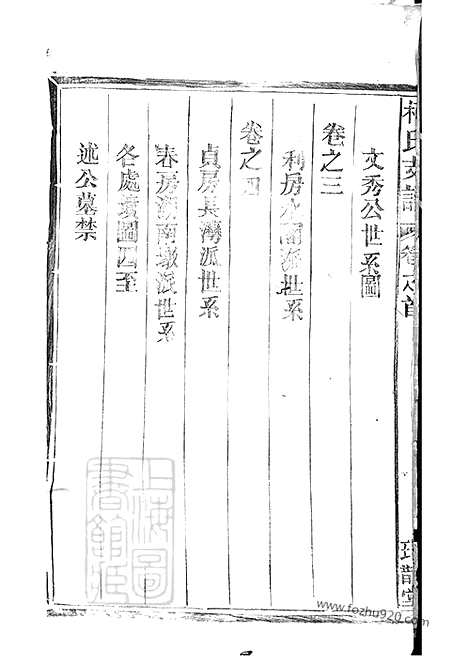 文秀公世系圖
卷之三
利房水閣派世系
卷之四
貞房長灣派世系
春房湖南墩派世系
各處墳圖四至
述公墓禁
氏支譜 卷之首
上海圖書館藏
www.fozhu920.com